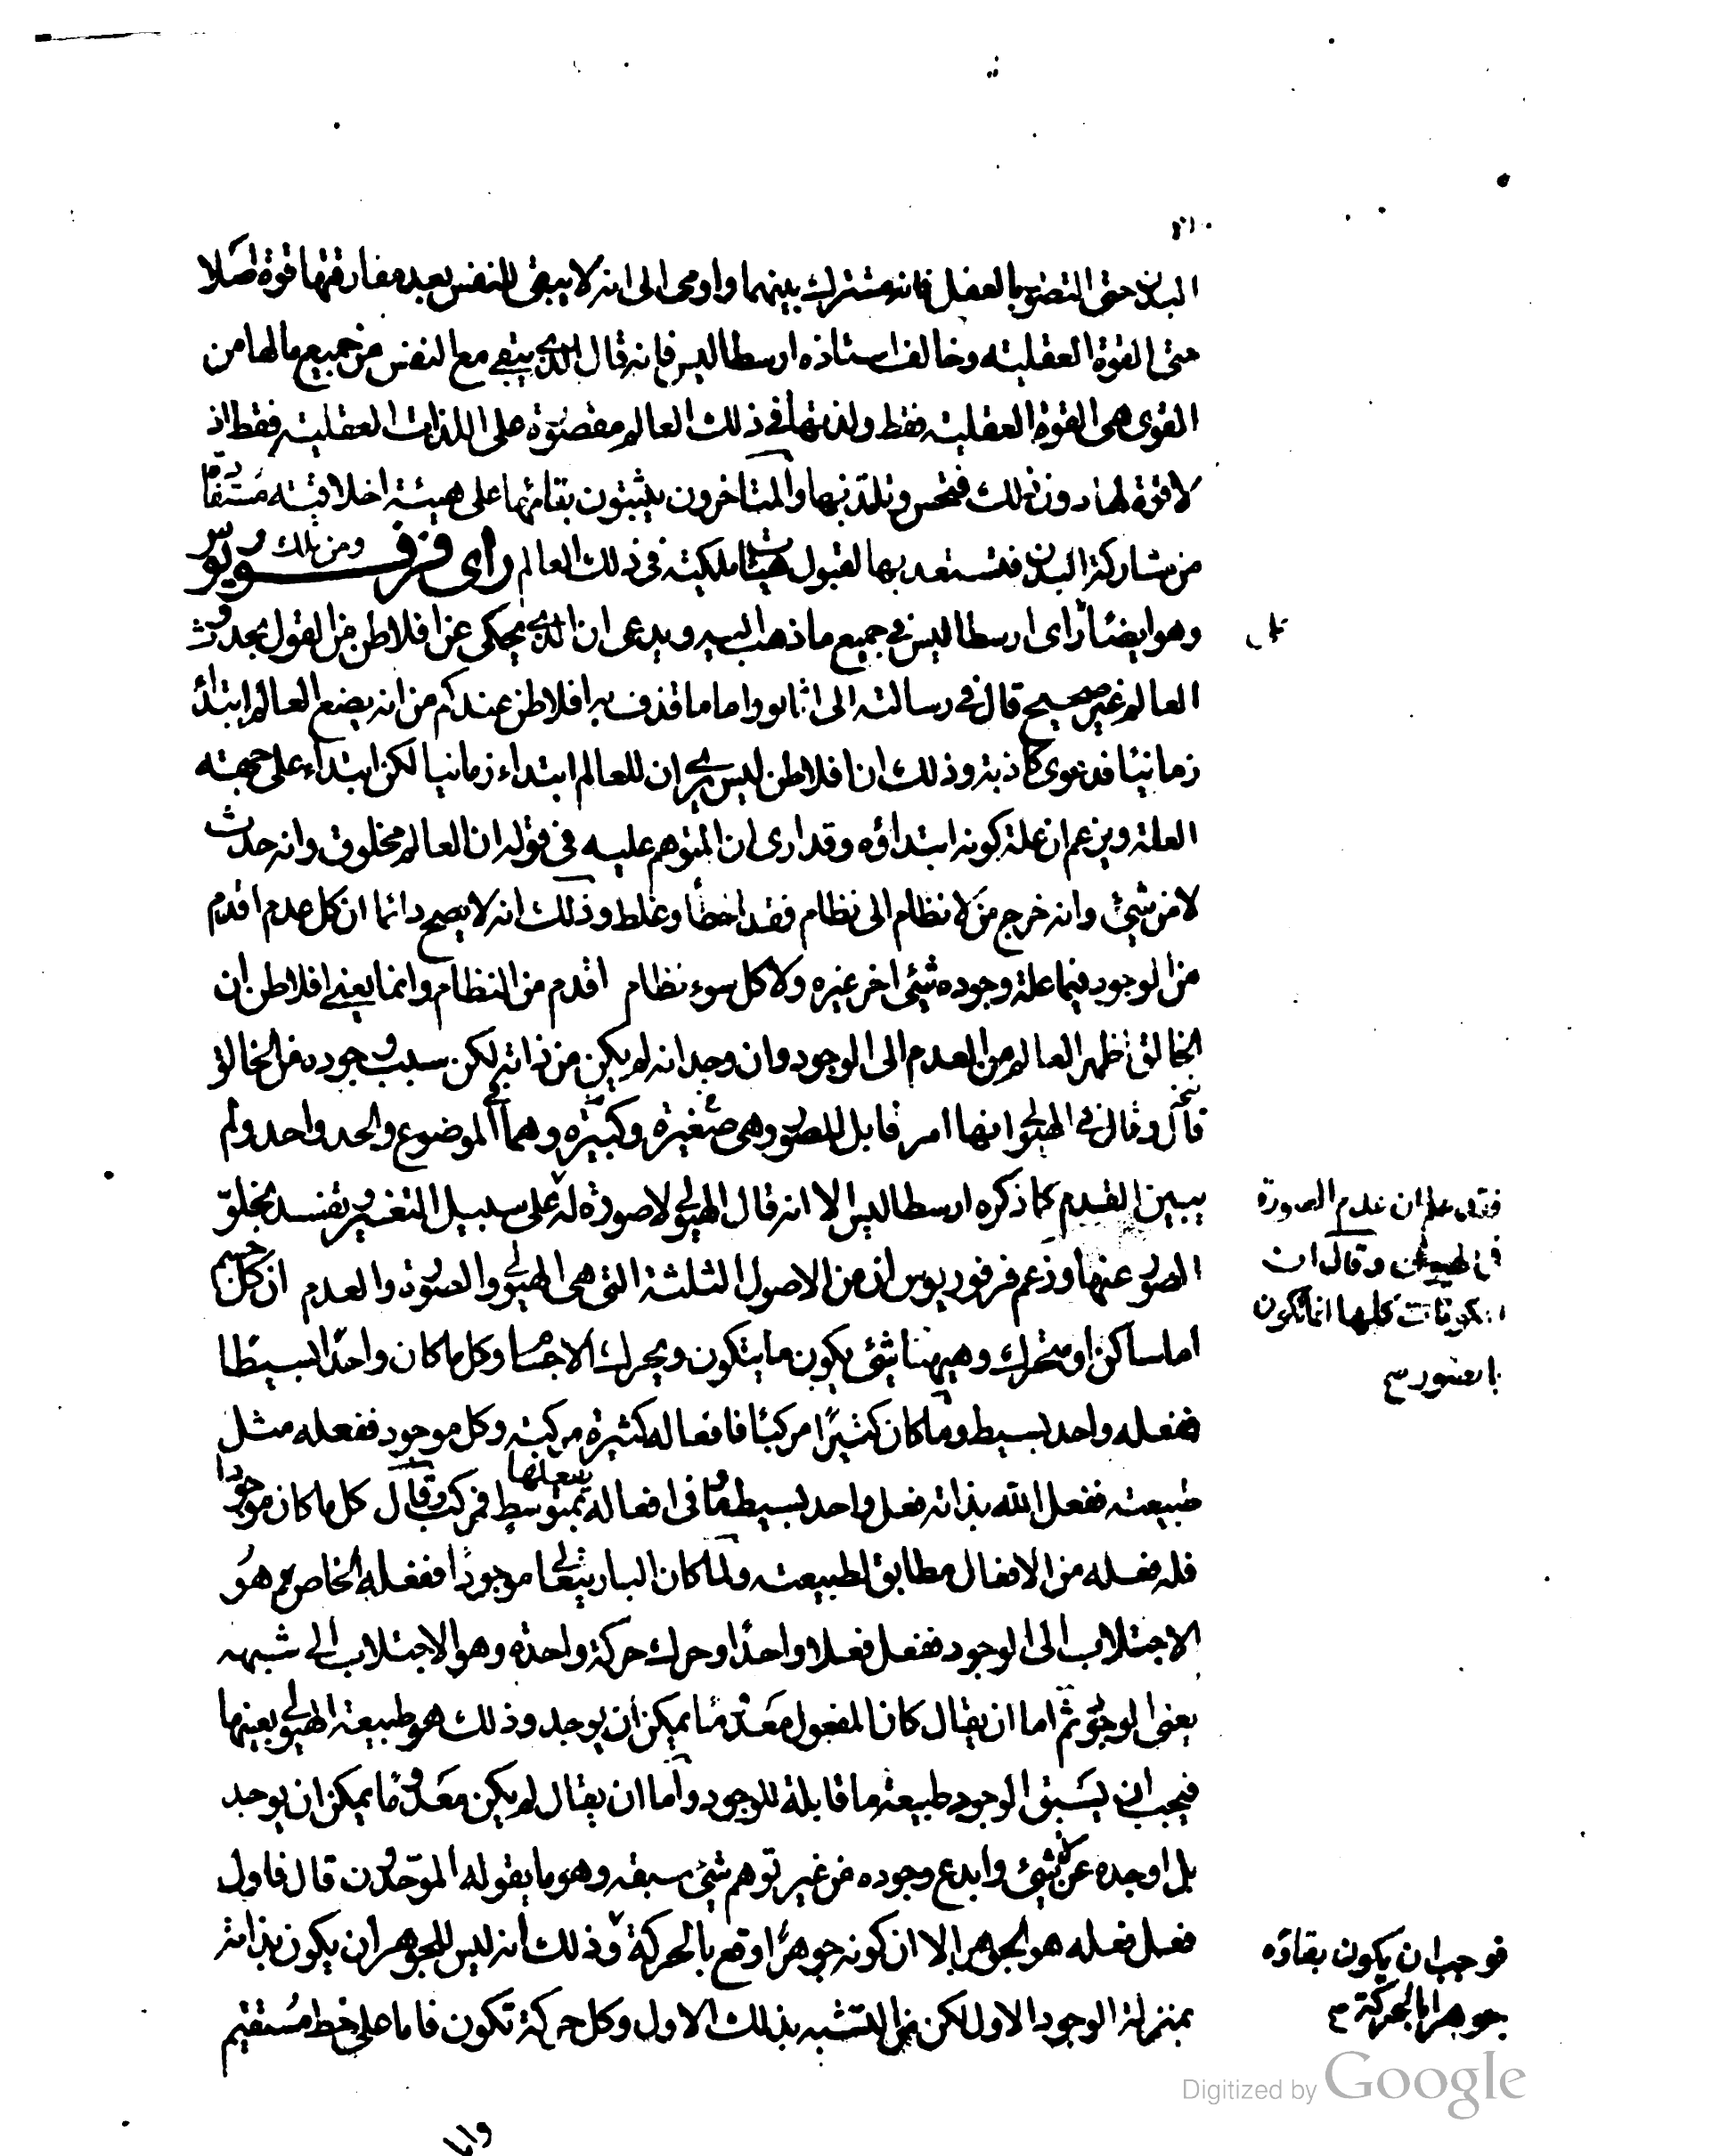 البدن حتى التصور بالعقل فانه مشترك بينهما واومى الى انه لا يبقى للنفس بعد مفارقتها قوة اصلا
حتى القوة العقلية وخالف استاذه ارسطاليس فانه قال الذي يبقى مع النفس من جميع مالها من
القوى هى القوة العقلية فقط ولذتها فى ذلك العالم مقصورة على اللذات العقلية فقط اذ
لا قوة لها دون ذلك فتحس وتلتذ بها والمتاخرون يثبتون بقائها على هيئة اخلاقية مستفادة
من مشاركة البدن فتستعد بها لقبول هيئات ملكية فى ذلك العالم ومن ذلك راى فرفوريوس
وهو ايضا راى ارسطاليس فى جميع ما ذهب اليه ويدعى ان الذي يحكى عن افلاطن من القول بحدوث
العالم غير صحيح قال فى رسالته الى اثابو واما ما قذف به افلاطن عندكم من انه يضع العالم ابتداء
زمانيا فدعوى كاذبة وذلك ان افلاطن ليس يرى ان للعالم ابتداء زمانيا لكن ابتداء على جهة
العلة ويزعم ان علة كونه ابتداؤه وقد ارى ان المتوهم عليه فى قوله ان العالم مخلوق وانه حدث
لا من شيئ وانه خرج من لا نظام الى نظام فقد اخطأ وغلط وذلك انه لا يصح دائما ان كل عدم اقدم
من الوجود فيما علة وجوده شيئ اخر غيره ولا كل سوء نظام اقدم من النظام وانما يعنى افلاطن ان
الخالق اظهر العالم من العدم الى الوجود وان وجد انه لم يكن من ذاته لكن سبب وجوده من الخالق
قال وقال فى الهيولى انها امر قابل للصور وهى صغيرة وكبيرة وهما فى الموضوع والحد واحد ولم
يبين القدم كما ذكره ارسطاليس الا انه قال الهيولى لا صورة له على سبيل التغير وتفسد بخلق
فقد علم ان عدم الصورة
فى الهيولى وقال ان
المكونات كلها انما تكون
بالصور
الصور عنها وزعم فرفوريوس ان من الاصول الثلثة التى هى الهيولى والصورة والعدم ان كل جسم
اما ساكن او متحرك وههنا شئ يكون ما يتكون ويحرك الاجسام وكل ما كان واحدا بسيطا
ففعله واحد بسيط وما كان كثيرا مركبا فافعاله كثيرة مركبة وكل موجود ففعله مثل
طبيعته ففعل الله بذاته فعل واحد بسيط وما فى افعاله يفعلها بمتوسط فمركب وقال كل ما كان موجودا
فله فعله من الافعال مطابق لطبيعته ولما كان البارئ تعالى موجودا ففعله الخاص هو
الاجتلاب الى الوجود ففعل فعلا واحدا وحرك حركة واحدة وهو الاجتلاب الى شبهه
يعنى الوجود ثم اما ان يقال كان المفعول معدوما يمكن ان يوجد وذلك هو طبيعة الهيولى بعينها
فيجب ان يسبق الوجود طبيعة ما قابلة للوجود واما ان يقال لم يكن معدوما يمكن ان يوجد
بل اوجده عن لا شيئ وابدع وجوده من غير توهم شيئ سبقه وهو ما يقوله الموحدون قال فاول
فعل فعله هو الجوهر الا ان كونه جوهرا وقع بالحركة وذلك انه ليس للجوهر ان يكون بذاته
فوجب ان يكون بقاؤه
جوهرا بالحركة
بمنزلة الوجود الاول لكن من التشبه بذلك الاول وكل حركة تكون فاما على خط مستقيم
واما
Digitized by Google